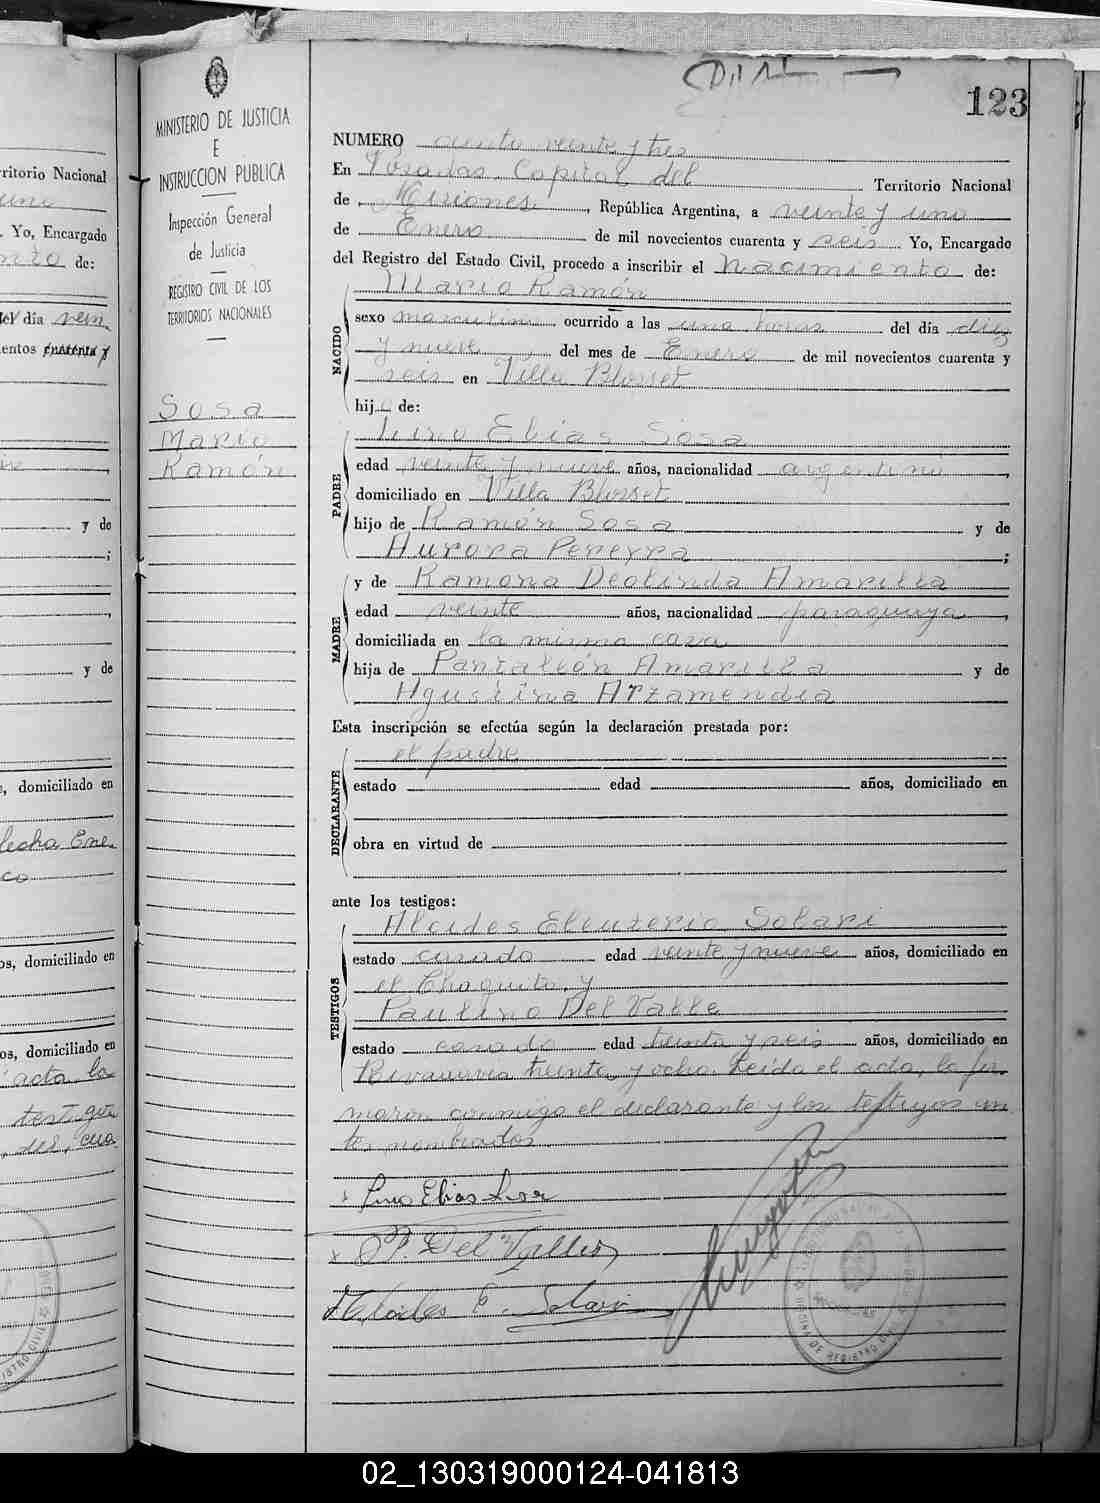 123
MINISTERIO DE JUSTICIA
E
INSTRUCCION PUBLICA
Inspección General
de Justicia
REGISTRO CIVIL DE LOS
TERRITORIOS NACIONALES
Sosa
Mario
Ramón
NUMERO ciento veinte y tres
En Posadas Capital del Territorio Nacional
de Misiones, República Argentina, a veinte y uno
de Enero de mil novecientos cuarenta y seis Yo, Encargado
del Registro del Estado Civil, procedo a inscribir el Nacimiento de:
NACIDO
Mario Ramón
sexo masculino ocurrido a las una horas del día diez
y nueve del mes de Enero de mil novecientos cuarenta y
seis en Villa Blosset
hijo de:
PADRE
Lino Elias Sosa
edad veinte y nueve años, nacionalidad argentino,
domiciliado en Villa Blosset
hijo de Ramón Sosa y de
Aurora Pereyra;
MADRE
y de Ramona Deolinda Amarilla
edad veinte años, nacionalidad paraguaya,
domiciliada en la misma casa
hija de Pantalión Amarilla y de
Agustina Arzamendia
Esta inscripción se efectúa según la declaración prestada por:
DECLARANTE
el padre
estado edad años, domiciliado en
obra en virtud de
ante los testigos:
TESTIGOS
Alcides Eleuterio Solari
estado casado edad veinte y nueve años, domiciliado en
el Chaquito, y
Paulino Del Valle
estado casado edad treinta y seis años, domiciliado en
Rivadavia treinta y ocho. Leída el acta, la fir
maron conmigo el declarante y los testigos an
tes nombrados
Lino Elias Sosa
P. Del Valle
Alcides E. Solari
OFICINA DE REGISTRO CIVIL
rritorio Nacional
. Yo, Encargado
de:
del día vein
entos
y de
;
y de
, domiciliado en
fecha Ene.
co
os, domiciliado en
os, domiciliado en
acta la
testigos
02_130319000124-041813